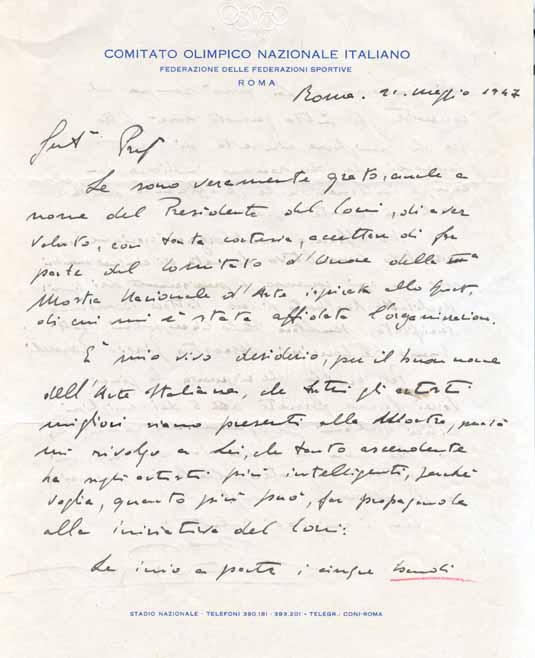 COMITATO OLIMPICO NAZIONALE ITALIANO
FEDERAZIONE DELLE FEDERAZIONI SPORTIVE
ROMA
Roma. 21. maggio 1947
Prof
Le sono veramente grato, anche a
nome del Presidente del Coni, di aver
voluto, con tanta cortesia, accettare di far
parte del Comitato d'Onore della
Mostra Nazionale d'Arte ispirata allo Sport,
di cui mi è stata affidata l'organizzazione.
È mio vivo desiderio, per il buon nome
dell'Arte Italiana, che tutti gli artisti
migliori siano presenti alla Mostra, perciò
mi rivolgo a Lei, che tanto ascendente
ha sugli artisti più intelligenti, perché
voglia, quanto più può, far propaganda
alla iniziativa del Coni.
Le invio a parte i cinque bandi
STADIO NAZIONALE - TELEFONI 390.181 - 393.201 - TELEGR.: CONI-ROMA